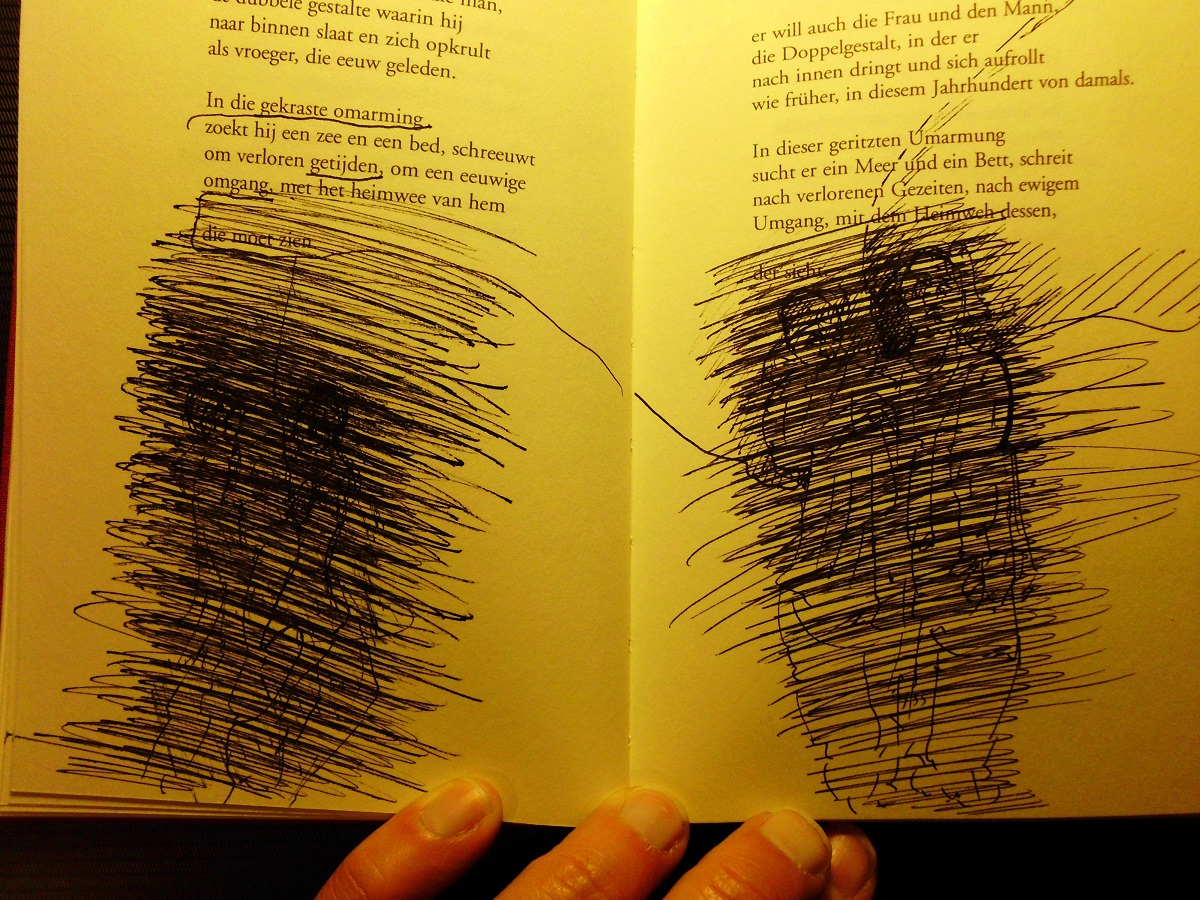 man,
dubbele gestalte waarin hij
naar binnen slaat en zich opkrult
als vroeger, die eeuw geleden.
In die gekraste omarming
zoekt hij een zee en een bed, schreeuwt
om verloren getijden, om een eeuwige
omgang, met het heimwee van hem
die moet zien
er will auch die Frau und den Mann,
die Doppelgestalt, in der er
nach innen dringt und sich aufrollt
wie früher, in diesem Jahrhundert von damals.
In dieser geritzten Umarmung
sucht er ein Meer und ein Bett, schreit
nach verlorenen Gezeiten, nach ewigem
Umgang, mit dem Heimweh dessen,
der sieht.